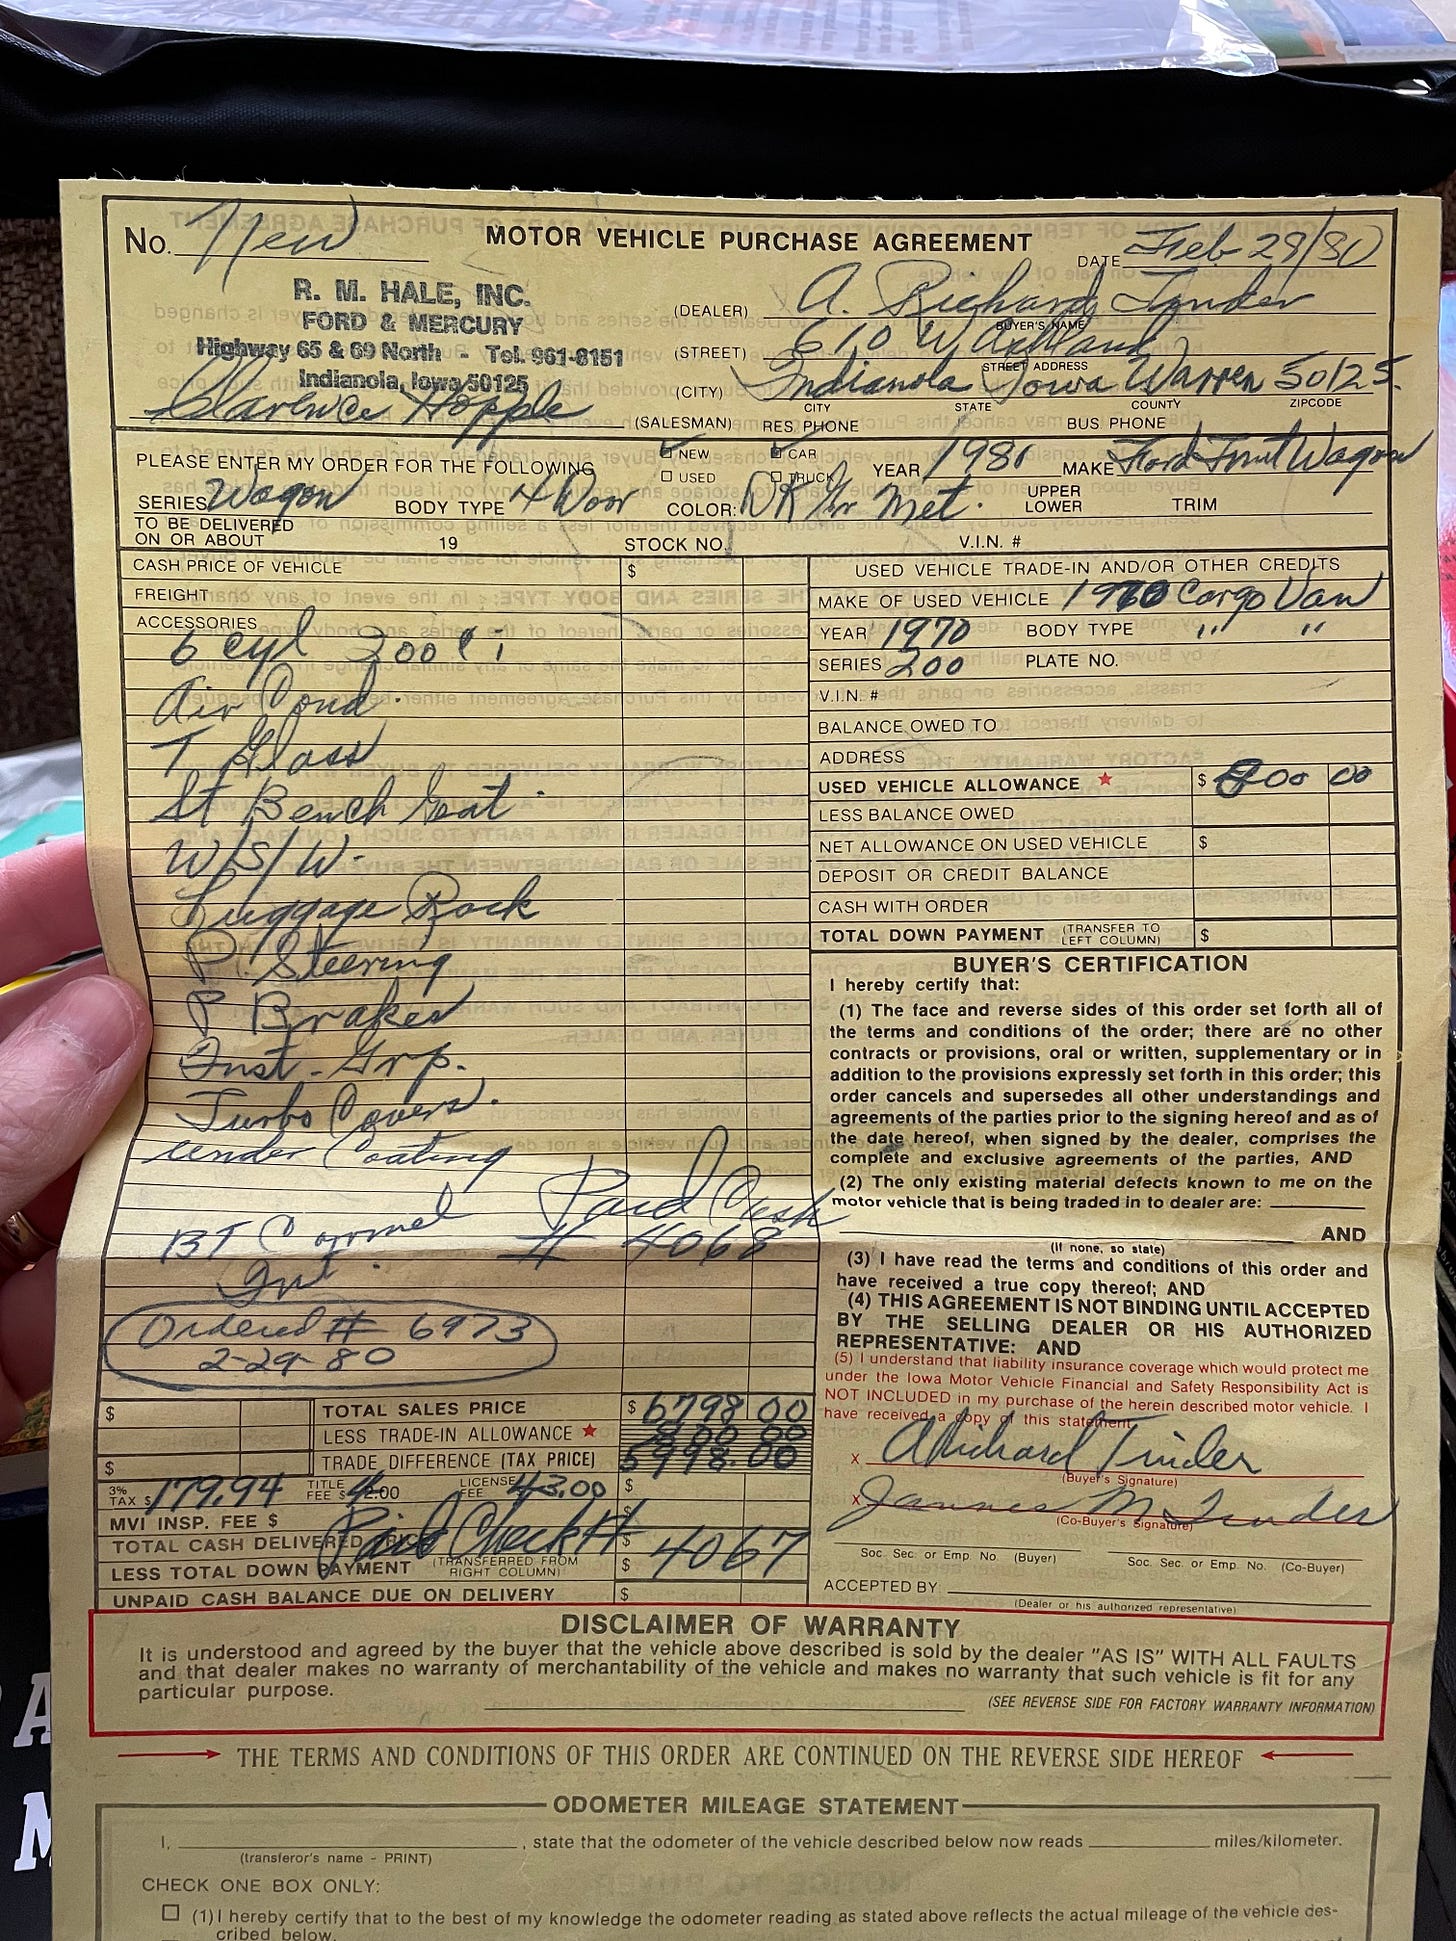 No. New
MOTOR VEHICLE PURCHASE AGREEMENT
DATE Feb 29/80
R. M. HALE, INC.
FORD & MERCURY
Highway 65 & 69 North - Tel. 961-8151
Indianola, Iowa 50125
Clarence Hopple (SALESMAN)
(DEALER) A. Richard Tinder
BUYER'S NAME
(STREET) 610 W Ashland
STREET ADDRESS
(CITY) Indianola Iowa Warren 50125
CITY STATE COUNTY ZIPCODE
RES. PHONE BUS PHONE
PLEASE ENTER MY ORDER FOR THE FOLLOWING NEW CAR YEAR 1980 MAKE Ford Wagon
USED TRUCK
SERIES Wagon BODY TYPE 4 Door COLOR: DK Met. UPPER LOWER TRIM
TO BE DELIVERED
ON OR ABOUT 19 STOCK NO. V.I.N. #
CASH PRICE OF VEHICLE $
FREIGHT
ACCESSORIES
6 cyl 200 C i
Air Cond.
T Glass
St Bench Seat
W/S/W.
Luggage Rack
P. Steering
P Brakes
Inst. Grp.
Turbo Covers.
Under Coating
Paid Cash
BT Int. # 4068
Ordered # 6973
2-29-80
USED VEHICLE TRADE-IN AND/OR OTHER CREDITS
MAKE OF USED VEHICLE 1970 Cargo Van
YEAR 1970 BODY TYPE " "
SERIES 200 PLATE NO.
V.I.N. #
BALANCE OWED TO
ADDRESS
USED VEHICLE ALLOWANCE ★ $ 800 00
LESS BALANCE OWED
NET ALLOWANCE ON USED VEHICLE $
DEPOSIT OR CREDIT BALANCE
CASH WITH ORDER
TOTAL DOWN PAYMENT (TRANSFER TO LEFT COLUMN) $
BUYER'S CERTIFICATION
I hereby certify that:
(1) The face and reverse sides of this order set forth all of
the terms and conditions of the order; there are no other
contracts or provisions, oral or written, supplementary or in
addition to the provisions expressly set forth in this order; this
order cancels and supersedes all other understandings and
agreements of the parties prior to the signing hereof and as of
the date hereof, when signed by the dealer, comprises the
complete and exclusive agreements of the parties, AND
(2) The only existing material defects known to me on the
motor vehicle that is being traded in to dealer are:
AND
(if none, so state)
(3) I have read the terms and conditions of this order and
have received a true copy thereof; AND
(4) THIS AGREEMENT IS NOT BINDING UNTIL ACCEPTED
BY THE SELLING DEALER OR HIS AUTHORIZED
REPRESENTATIVE: AND
(5) I understand that liability insurance coverage which would protect me
under the Iowa Motor Vehicle Financial and Safety Responsibility Act is
NOT INCLUDED in my purchase of the herein described motor vehicle. I
have received a copy of this statement.
x A Richard Tinder
(Buyer's Signature)
x M Tinder
(Co-Buyer's Signature)
Soc. Sec. or Emp. No. (Buyer) Soc. Sec. or Emp. No. (Co-Buyer)
ACCEPTED BY:
(Dealer or his authorized representative)
$ TOTAL SALES PRICE $ 6798 00
LESS TRADE-IN ALLOWANCE ★ 800 00
$ TRADE DIFFERENCE (TAX PRICE) 5998.00
3% TAX $ 179.94 TITLE FEE $ 2.00 LICENSE FEE 43.00 $
MVI INSP. FEE $ $
TOTAL CASH DELIVERED PRICE $
Paid Check # 4067
LESS TOTAL DOWN PAYMENT (TRANSFERRED FROM RIGHT COLUMN) $
UNPAID CASH BALANCE DUE ON DELIVERY $
DISCLAIMER OF WARRANTY
It is understood and agreed by the buyer that the vehicle above described is sold by the dealer "AS IS" WITH ALL FAULTS
and that dealer makes no warranty of merchantability of the vehicle and makes no warranty that such vehicle is fit for any
particular purpose.
(SEE REVERSE SIDE FOR FACTORY WARRANTY INFORMATION)
THE TERMS AND CONDITIONS OF THIS ORDER ARE CONTINUED ON THE REVERSE SIDE HEREOF
ODOMETER MILEAGE STATEMENT
I, , state that the odometer of the vehicle described below now reads miles/kilometer.
(transferor's name - PRINT)
CHECK ONE BOX ONLY:
(1) I hereby certify that to the best of my knowledge the odometer reading as stated above reflects the actual mileage of the vehicle des-
cribed below.